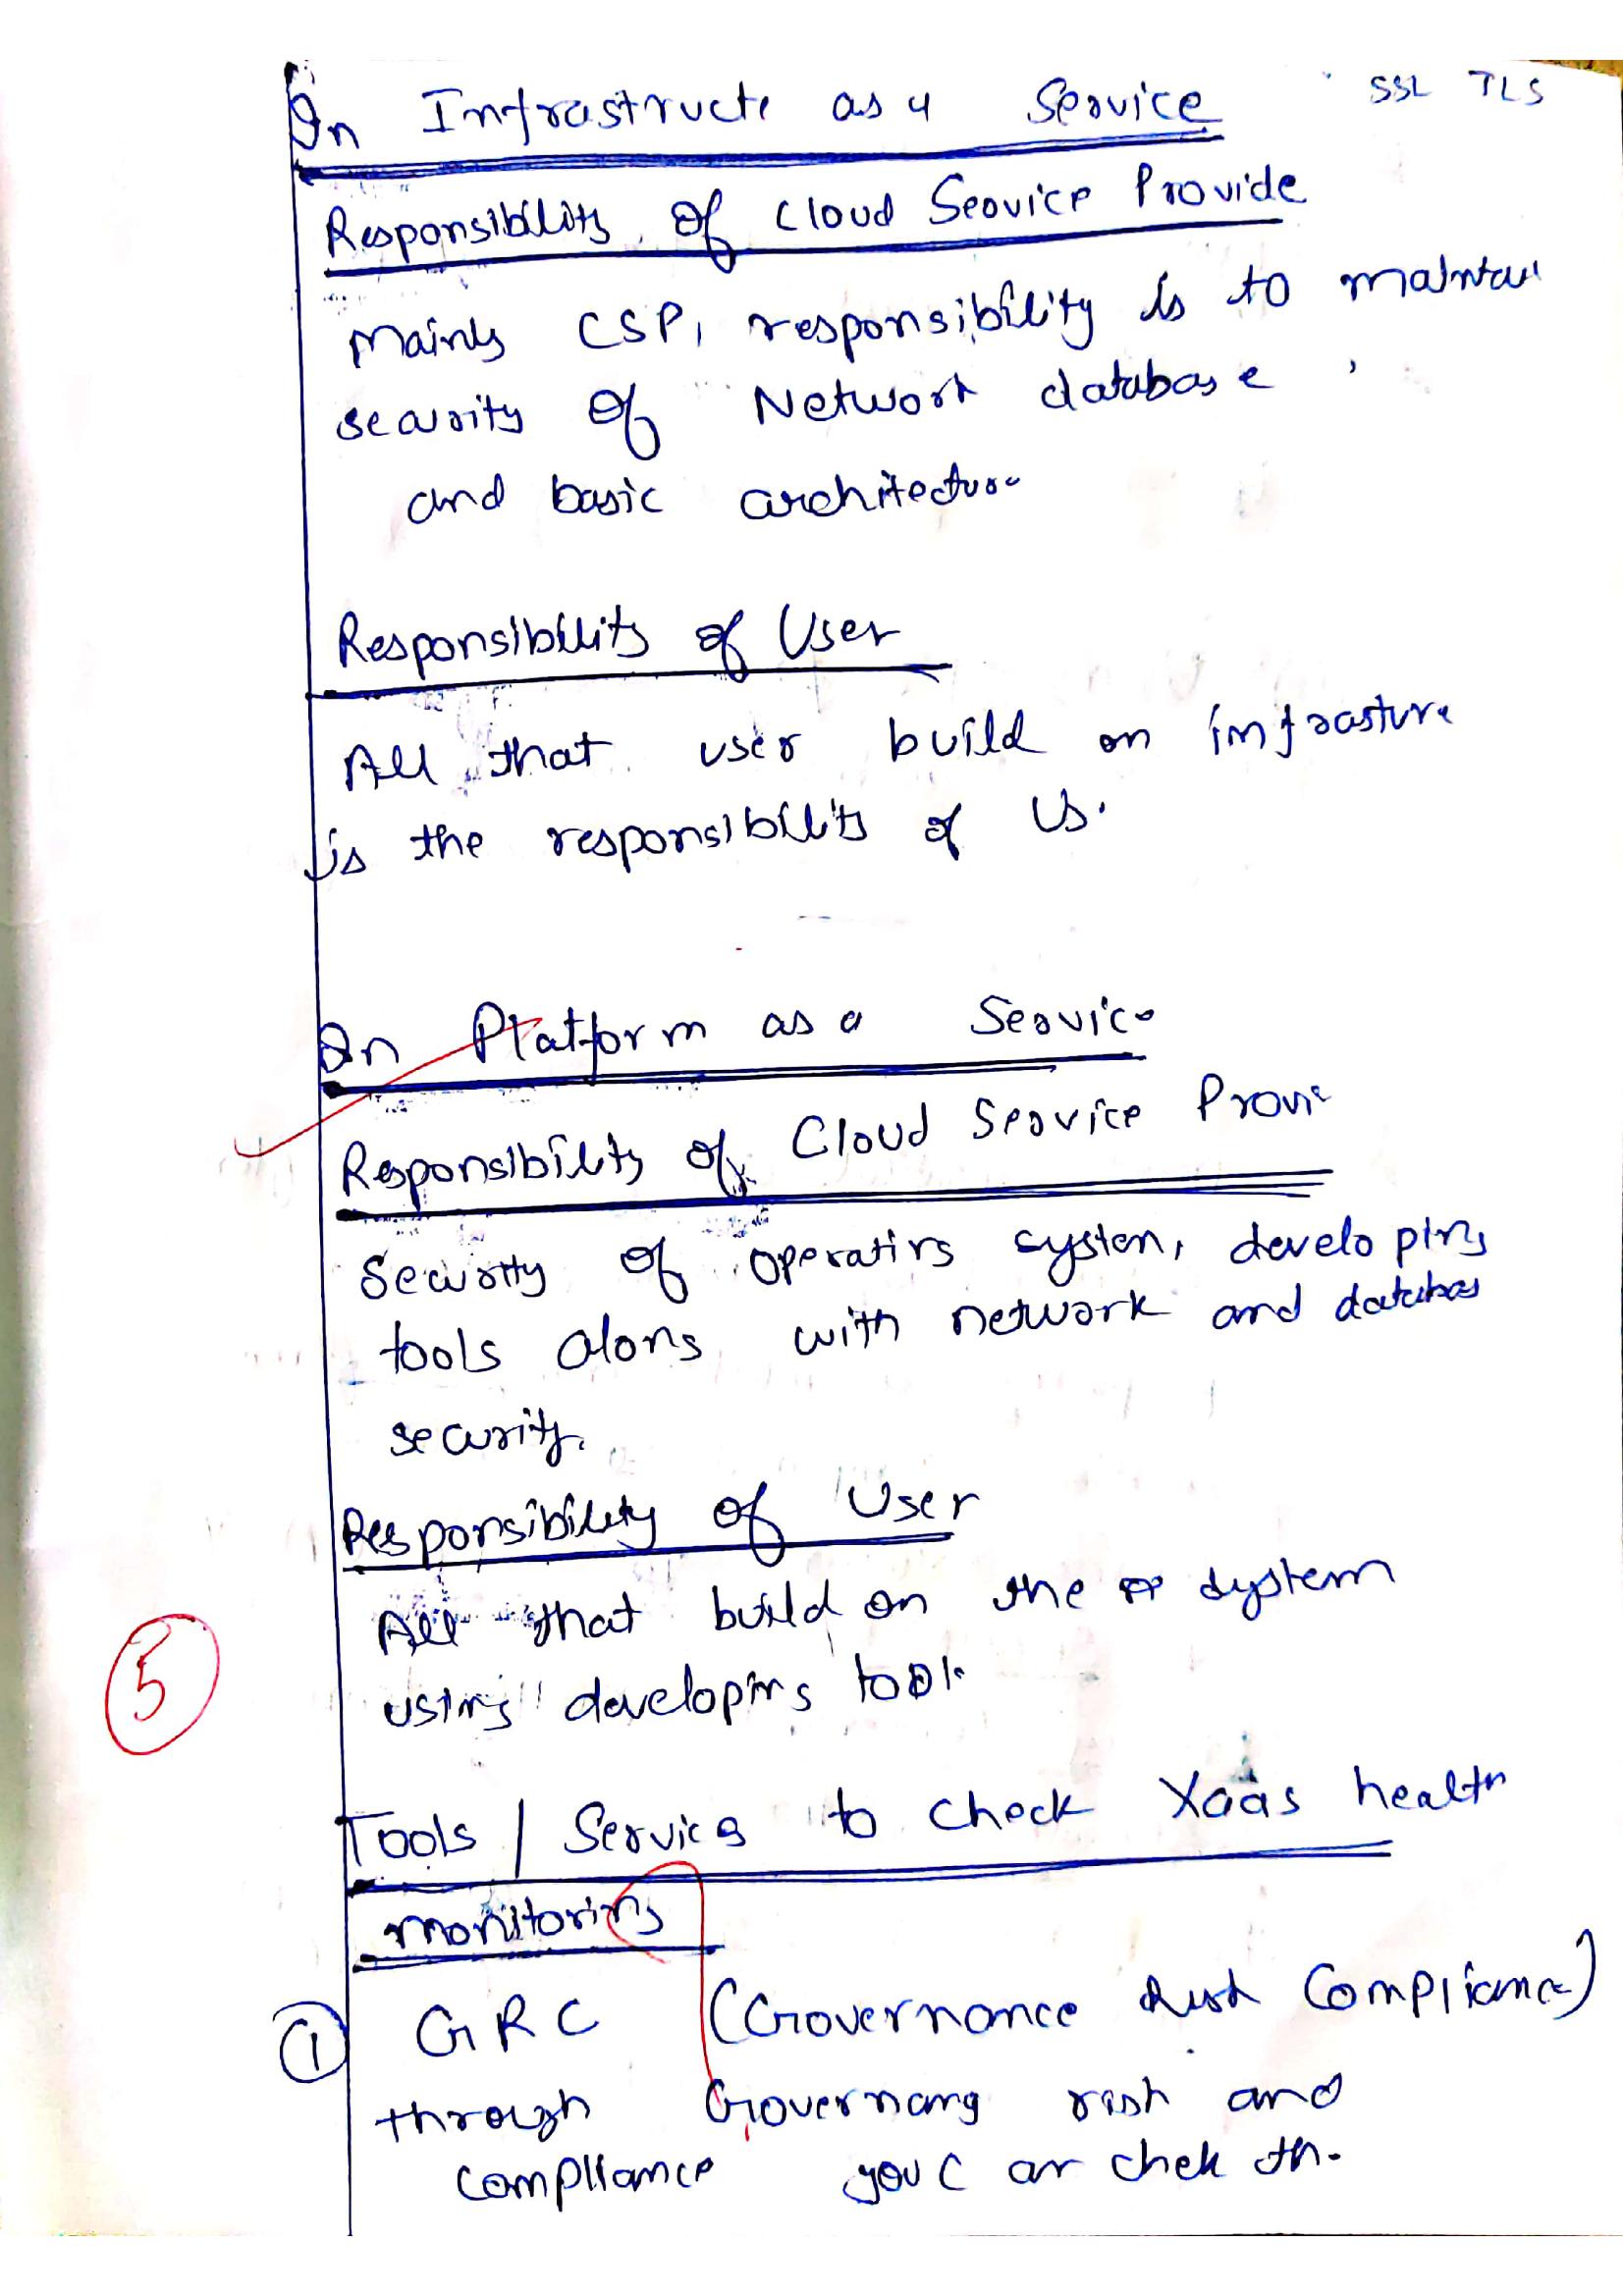 In Infrastructe as a Service
SSL TLS
Responsibility of Cloud Service Provide
Mainly CSP, responsibility is to maintai
security of Network database ,
and basic architecture
Responsibility of User
All that user build on infrasture
is the responsibility of Us.
In Platform as a Service
Responsibility of Cloud Service Provi
Security of operating system, developing
tools along with network and databas
security.
Responsibility of User
All that build on the system
5
using developing tool.
Tools / Services to check Xaas health
monitoring
1 GRC (Governance Risk Compliance)
through Governang risk and
compliance you can chek th.